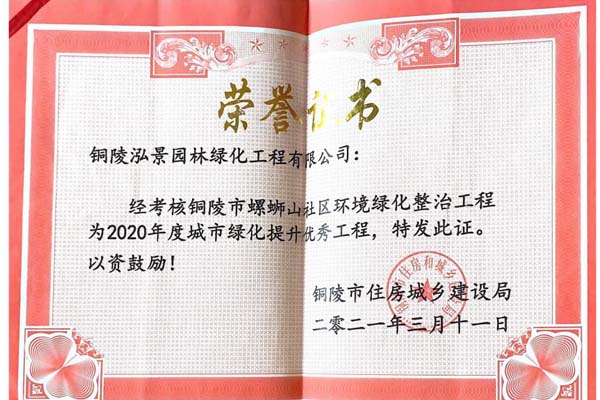 荣誉证书
铜陵泓景园林绿化工程有限公司：
经考核铜陵市螺蛳山社区环境绿化整治工程
为2020年度城市绿化提升优秀工程，特发此证。
以资鼓励！
铜陵市住房城乡建设局
二零二一年三月十一日